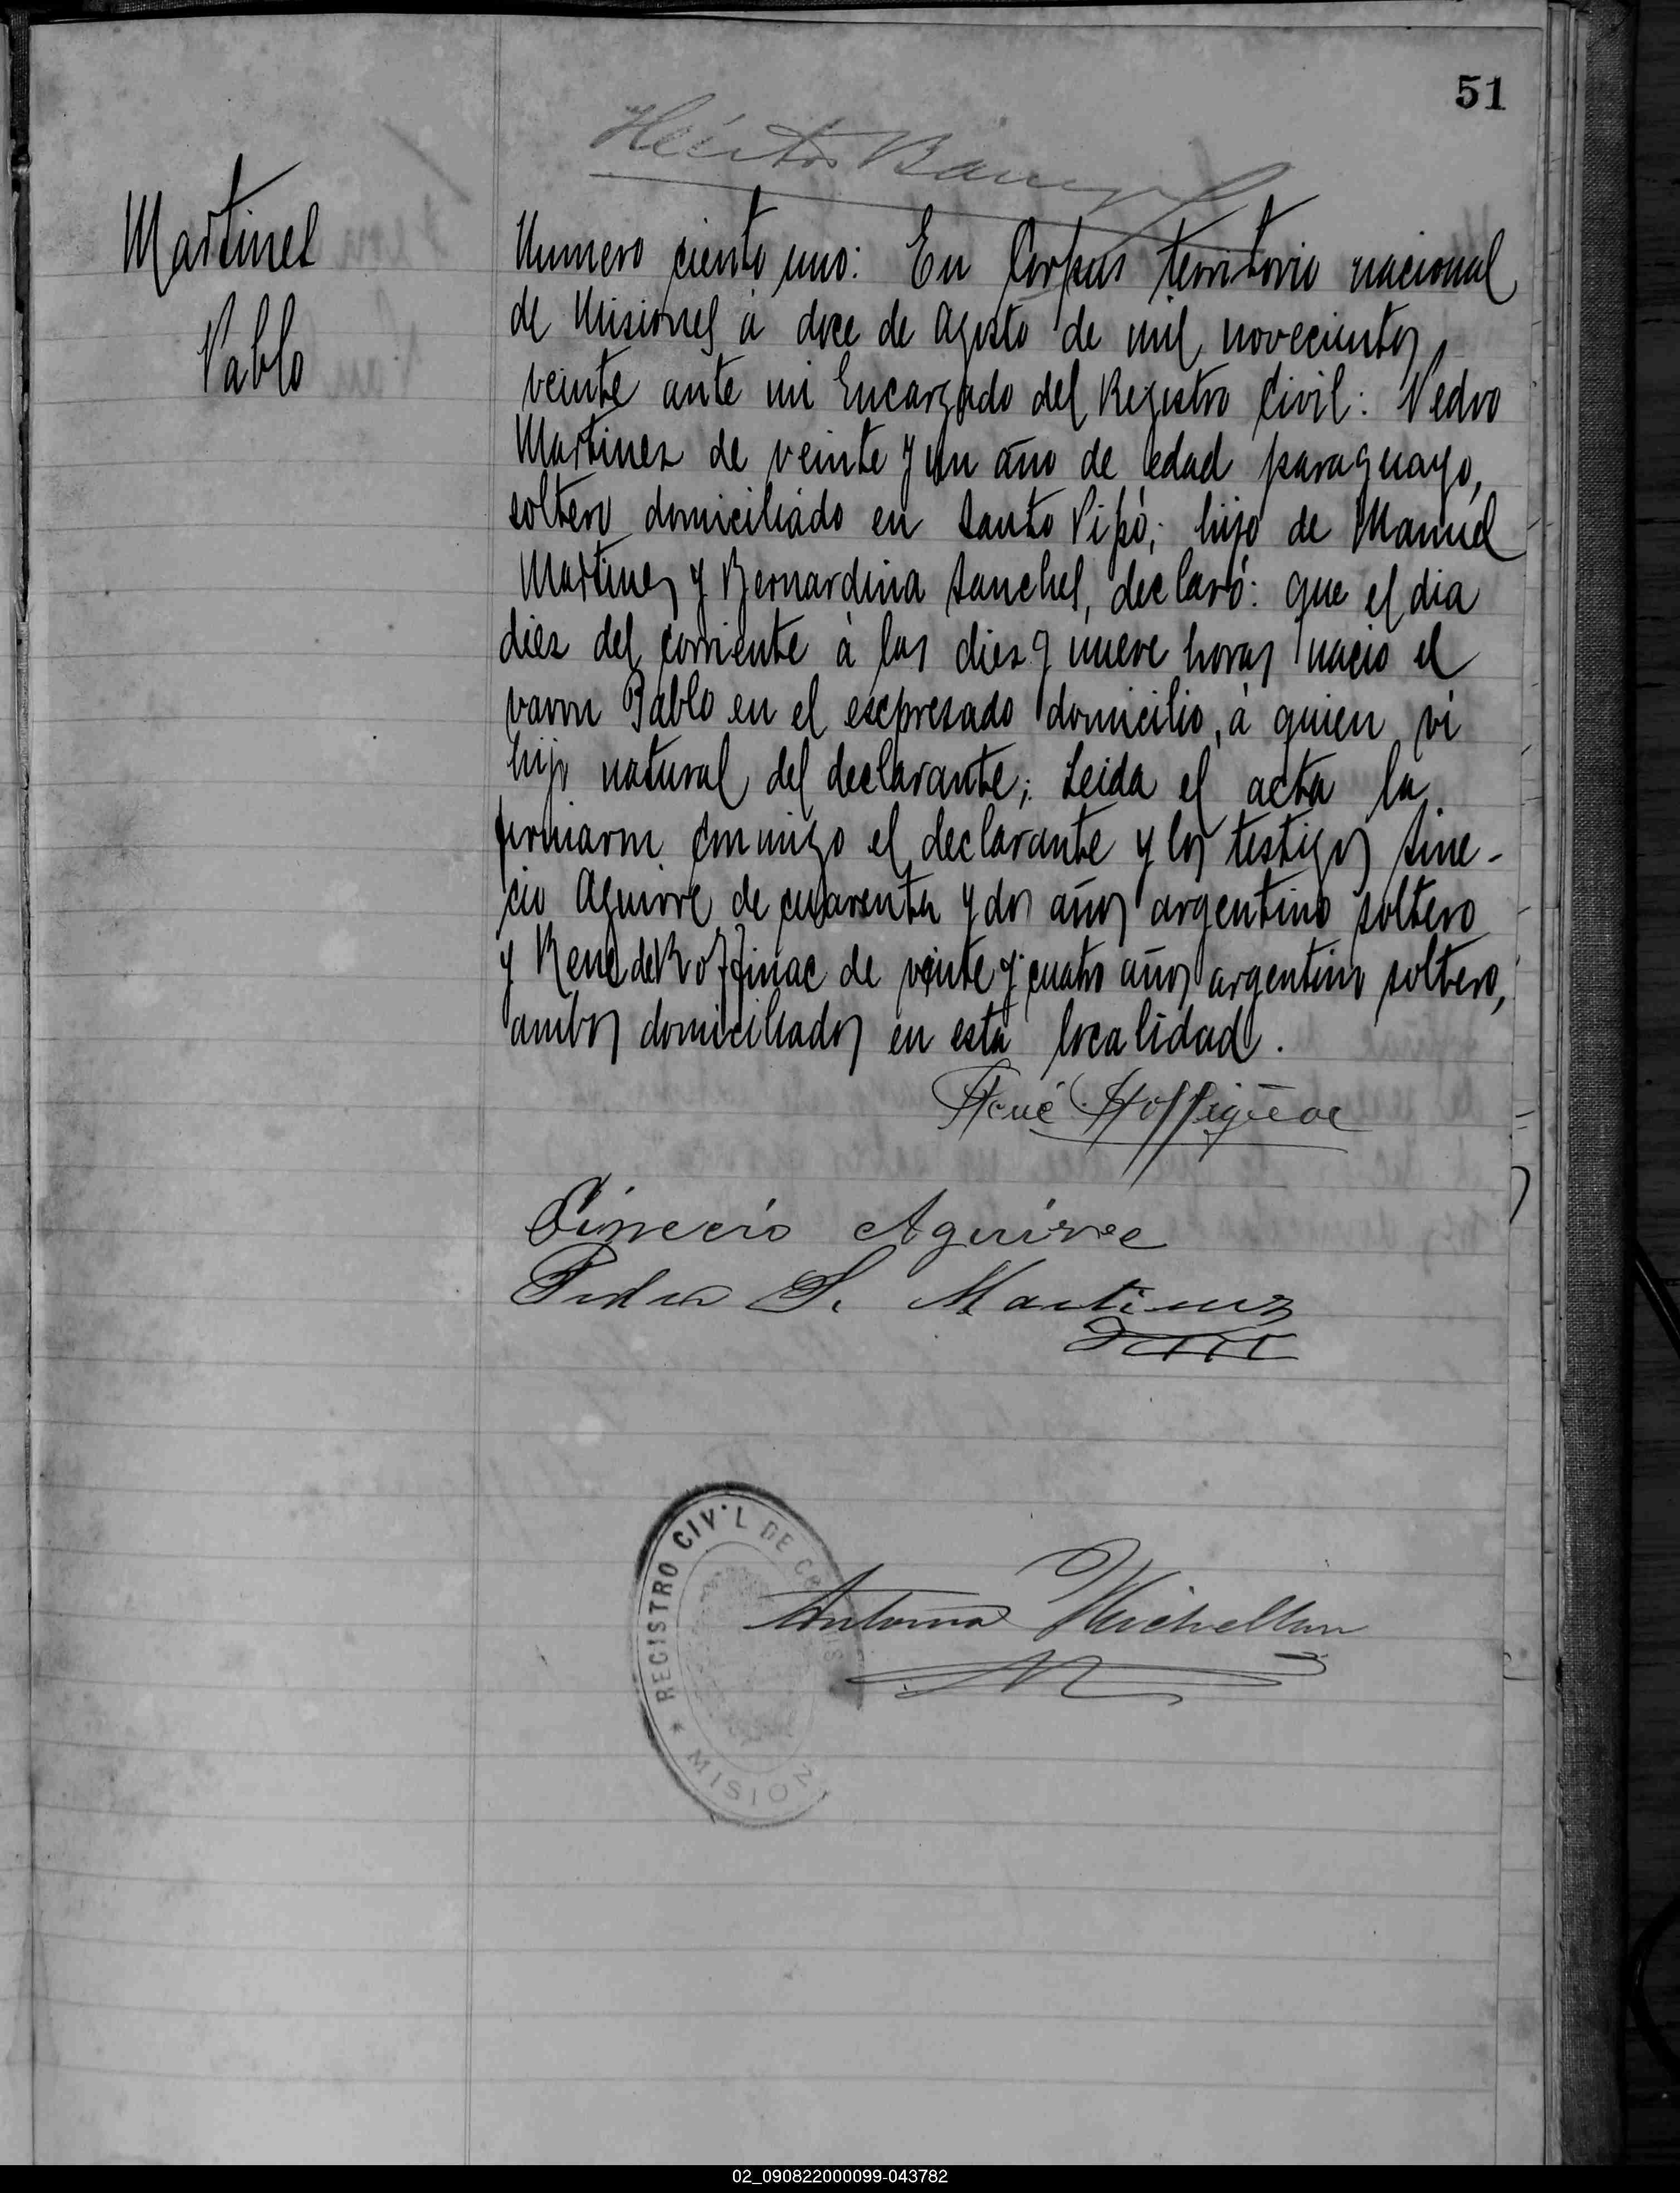 51
Héctor
Martinez
Pablo
Numero ciento uno: En Corpus territorio nacional
de Misiones á doce de Agosto de mil novecientos
veinte ante mi Encargado del Registro Civil: Pedro
Martinez de veinte y un año de edad paraguayo,
soltero domiciliado en Santo Pipó; hijo de Manuel
Martinez y Bernardina Sanchez, declaró: que el dia
diez del corriente á las diez y nueve horas nacio el
varon Pablo en el escpresado domicilio, á quien vi
hijo natural del declarante; Leida el acta la
firmaron conmigo el declarante y los testigos Sine-
cio Aguirre de cuarenta y dos años argentino soltero
y René de Roffinac de veinte y cuatro años argentino soltero,
ambos domiciliados en esta localidad.
René
Sinecio Aguirre
Pedro S. Martinez
REGISTRO CIVIL DE
MISION
Antonio
02_090822000099-043782